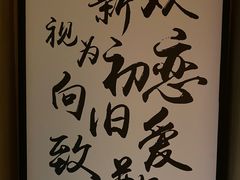 恋爱
新初旧
为
视向致